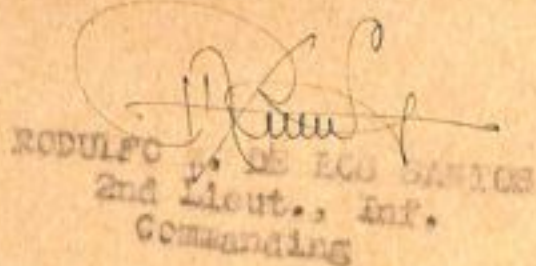 RODULFO DE LOS SANTOS
2nd Lieut., Inf.
Commanding